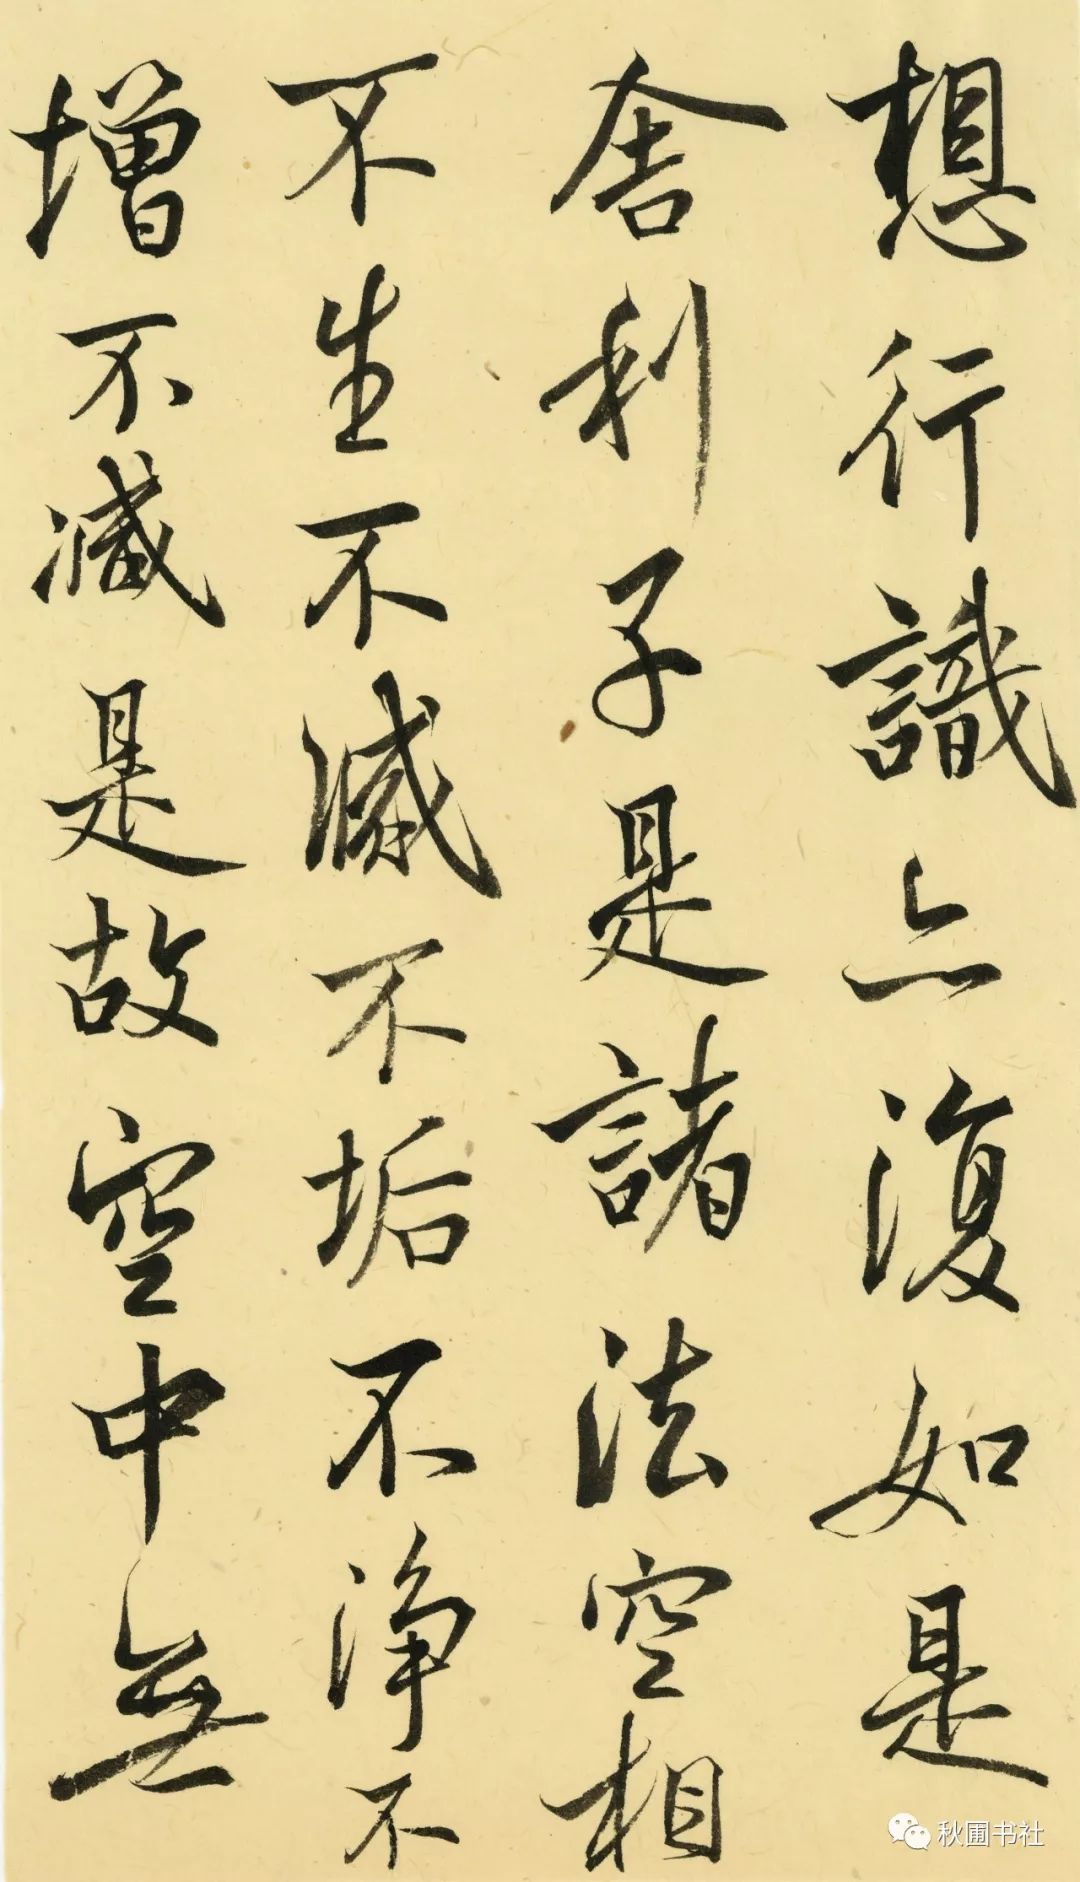 想行識亦復如是
舍利子是諸法空相
不生不滅不垢不淨不
增不減是故空中無
秋圃书社